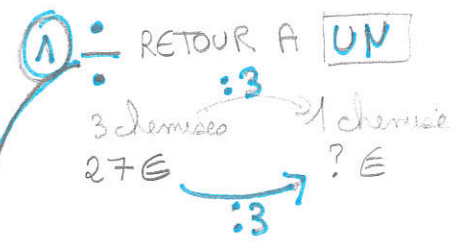 1 ÷ RETOUR A UN
:3
3 chemises 1 chemise
27€ ? €
:3